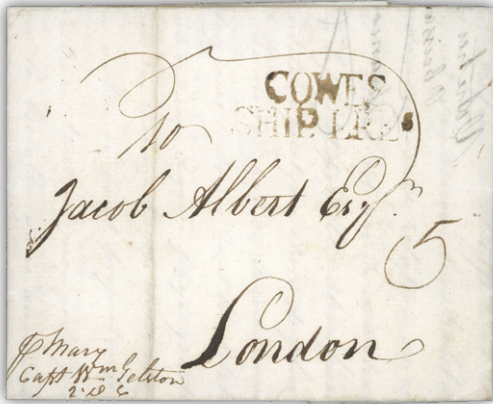 COWES
SHIP LRE
To
Jacob Albert Esqr
5
London
p Mary
Capt Wm